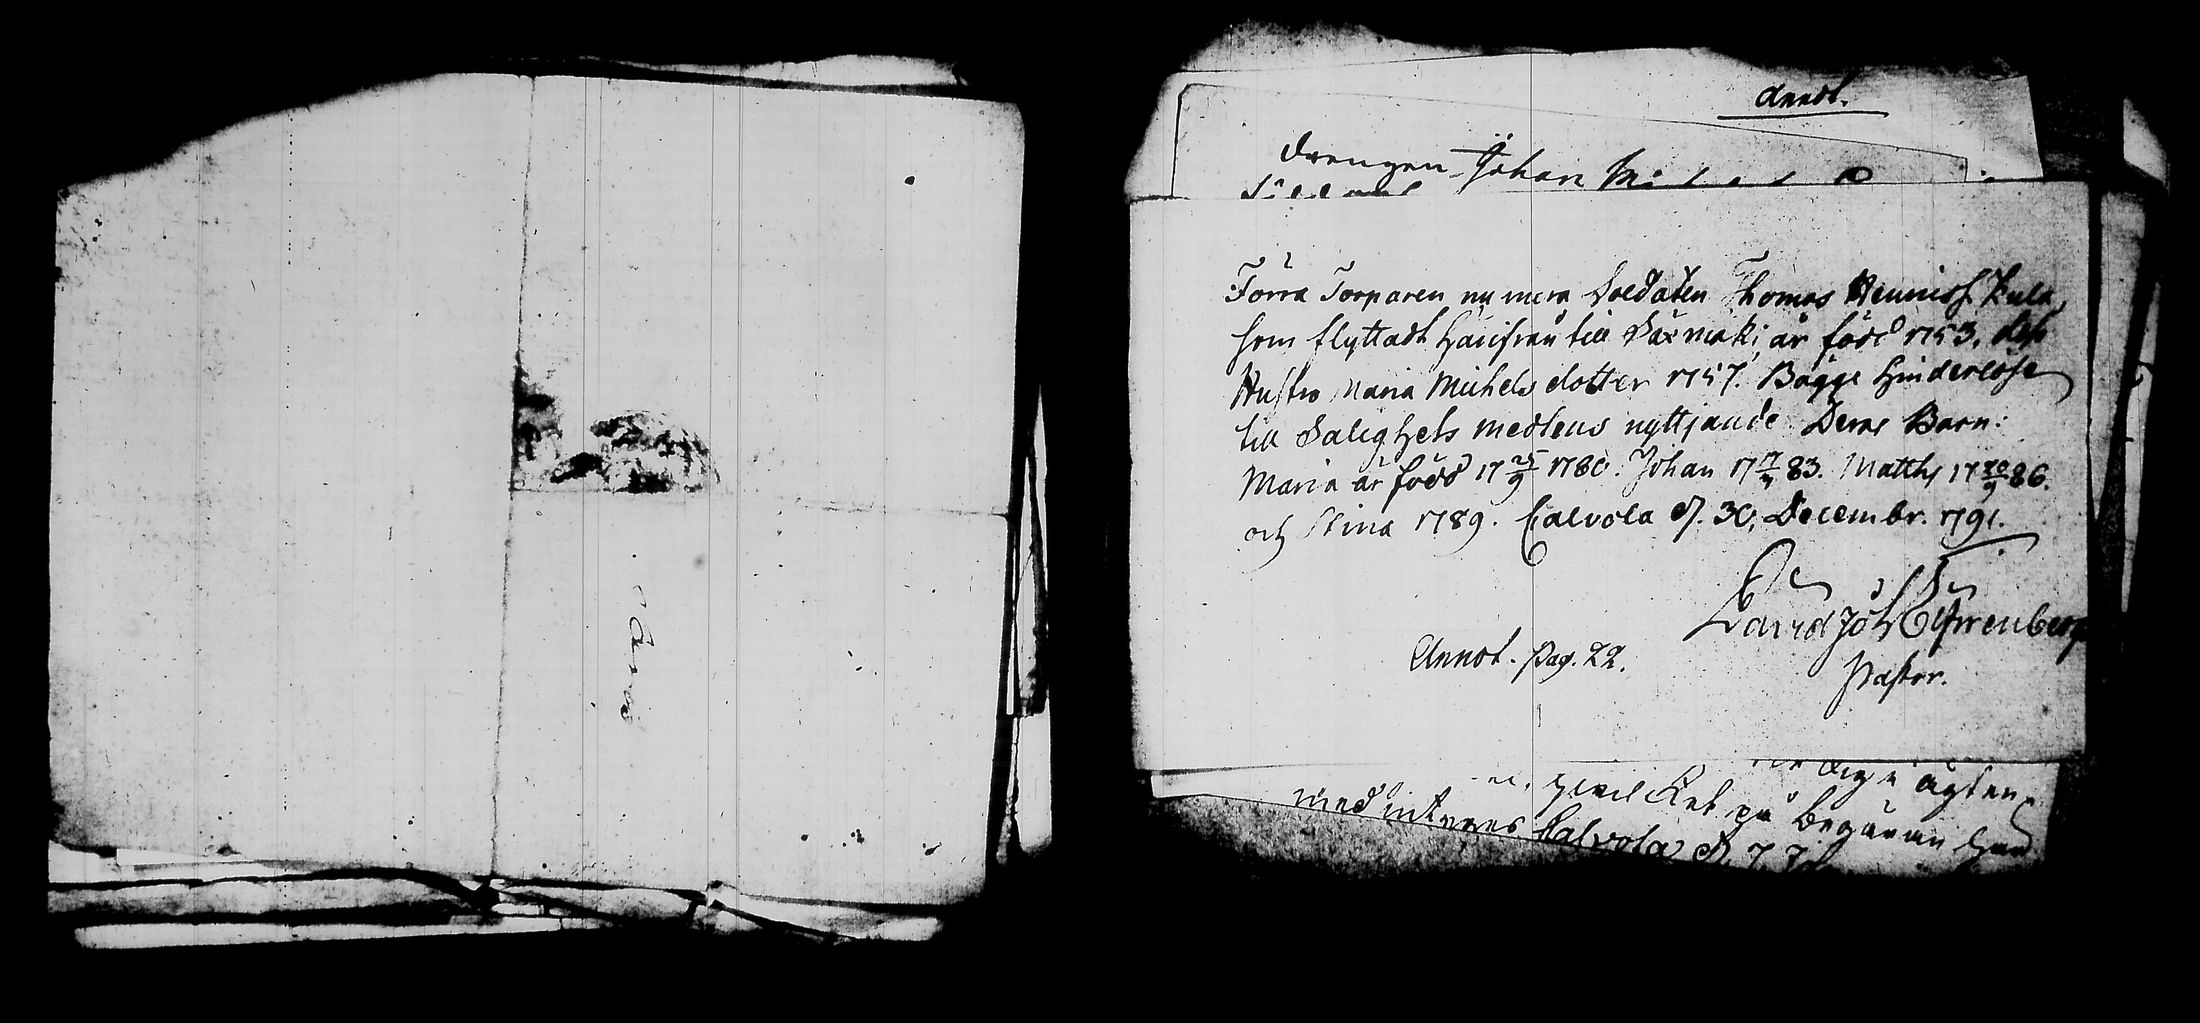 Annot.
Drengen Johan
Förra Torparen nu mera Soldaten Thomas Hinrichs. Kula,
som flyttadt härifrån till Saxmäki är född 1753. dess
Hustru Maria Michels dotter 1757. Bägge hinderlöse
till Salighets medlens nyttjande. Deras Barn:
Maria är född 17 25/9 1780. Johan 17 17/ 83. Matths 17 20/9 86.
och Stina 1789. Calvola d. 30. Decembr. 1791.
David Joh. Ehrenberg
Pastor.
Annot. Pag. 22.
ägten
på begäran
med Calvola d.